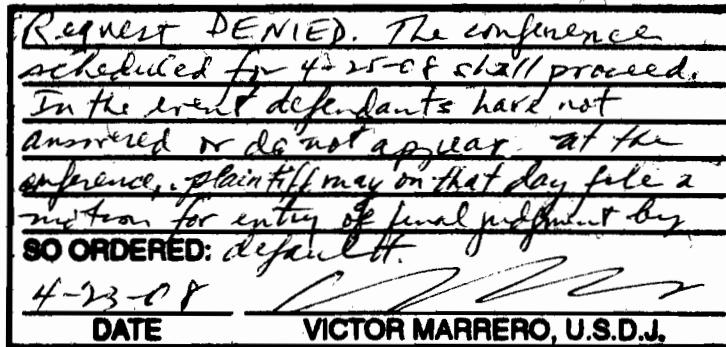 Request DENIED. The conference
scheduled for 4-25-08 shall proceed.
In the event defendants have not
answered or do not appear at the
conference, plaintiff may on that day file a
motion for entry of final judgment by
SO ORDERED: default.
4-23-08
DATE VICTOR MARRERO, U.S.D.J.